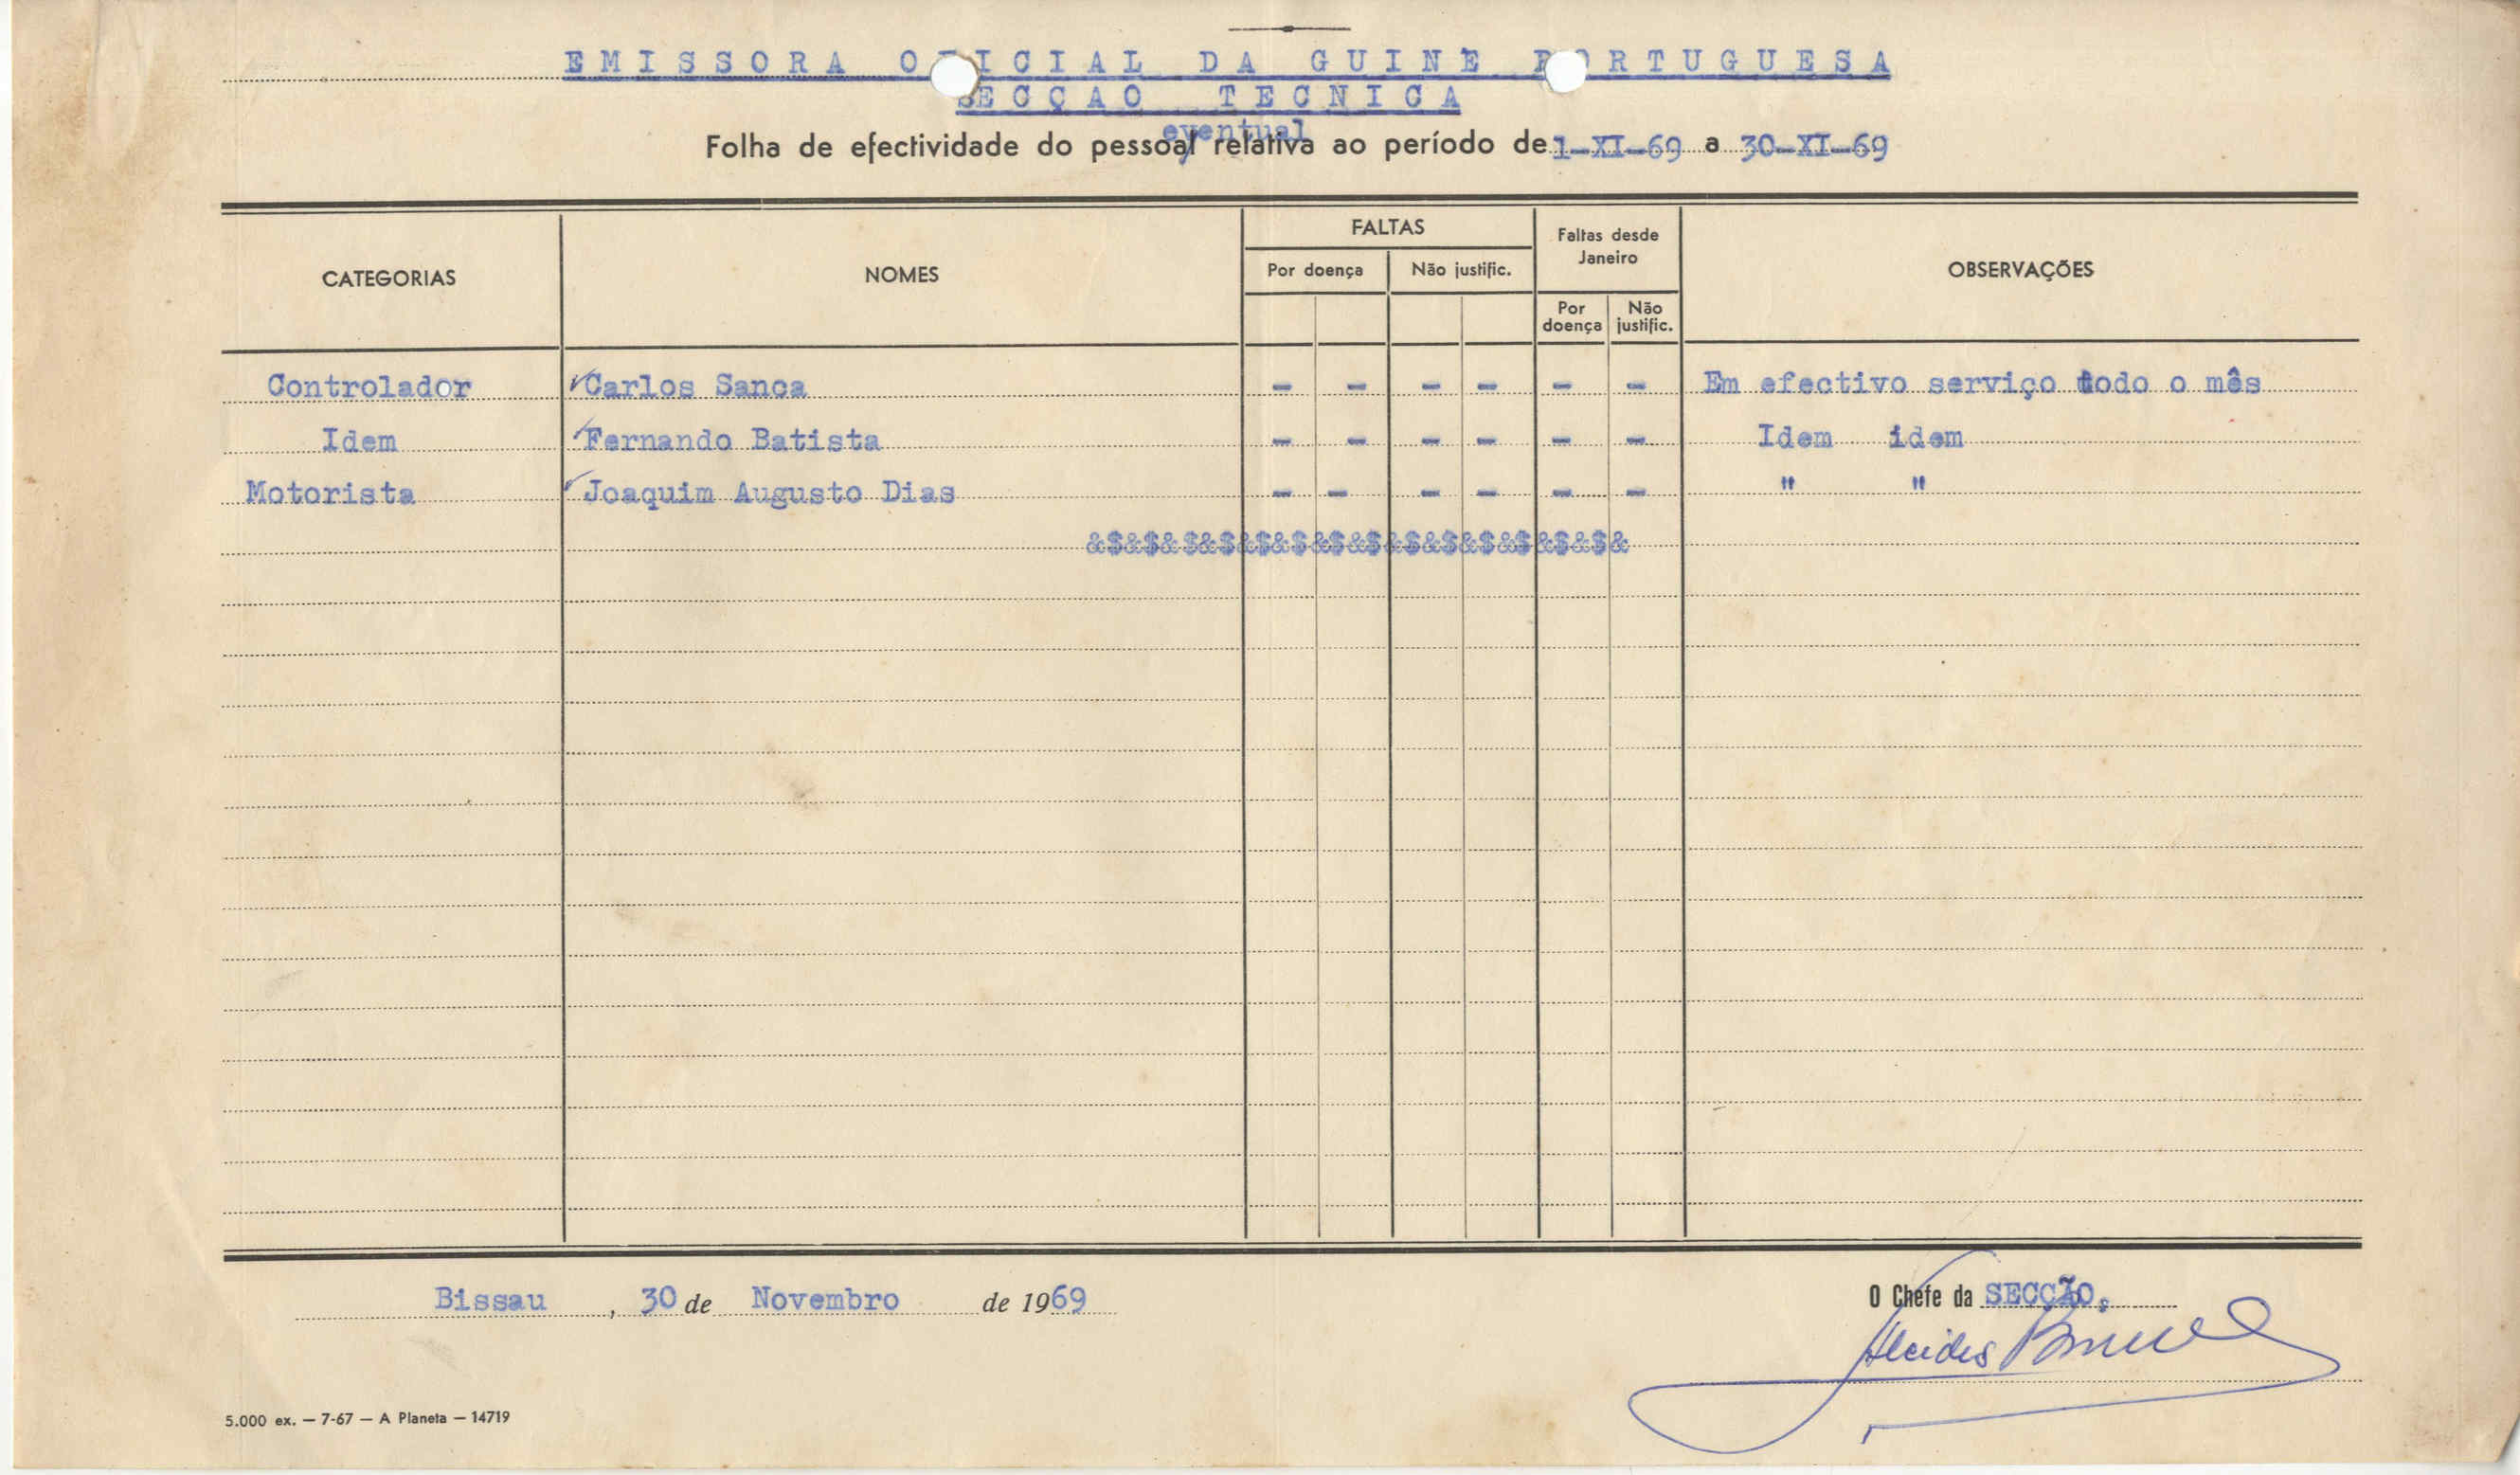 EMISSORA OFICIAL DA GUINÉ PORTUGUESA
SECÇAO TECNICA
eventual
Folha de efectividade do pessoal relativa ao período de 1-XI-69 a 30-XI-69
CATEGORIAS NOMES FALTAS Faltas desde Janeiro OBSERVAÇÕES
Por doença Não justific. Por doença Não justific.
Controlador Carlos Sanca - - - - - - Em efectivo serviço todo o mês
Idem Fernando Batista - - - - - - Idem idem
Motorista Joaquim Augusto Dias - - - - - - " "
&$&$&$&$&$&$&$&$&$&$&$&$&$&$&
Bissau, 30 de Novembro de 1969
O Chefe da SECÇÃO,
Alcides
5.000 ex. — 7-67 — A Planeta — 14719